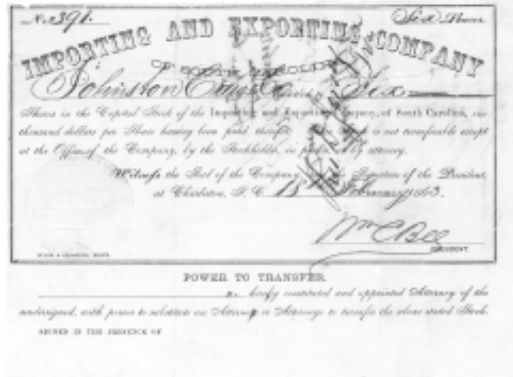 No. 391.
Six Shares
IMPORTING AND EXPORTING COMPANY
OF SOUTH CAROLINA
Johnston Six
Shares in the Capital Stock of the Importing and Exporting Company, of South Carolina, one
thousand dollars per Share having been paid thereon is not transferable except
at the Office of the Company, by the Stockholder, in person or by attorney.
Witness the Seal of the Company, Signature of the President,
at Charleston, S. C. 18 February 1863.
Wm C Bee
PRESIDENT.
POWER TO TRANSFER.
hereby constituted and appointed Attorney of the
undersigned, with power to substitute an Attorney or Attorneys to transfer the above stated Stock.
SIGNED IN THE PRESENCE OF